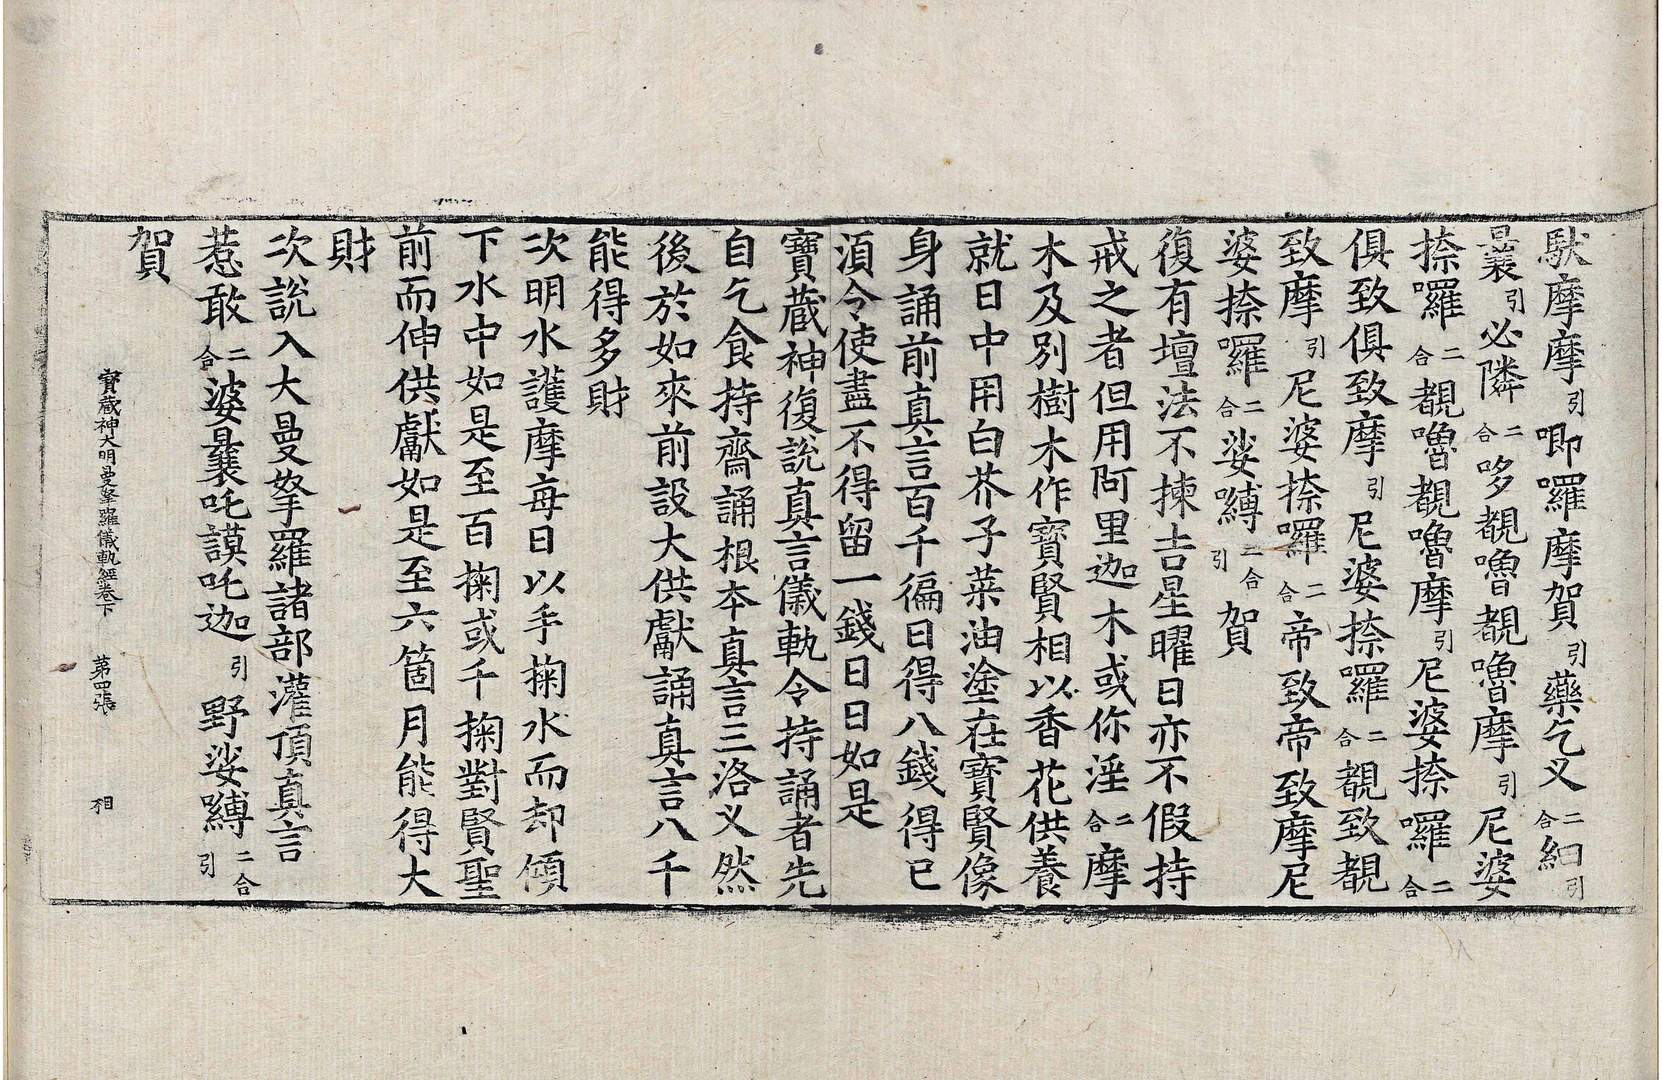 馱摩摩引唧囉摩賀引藥乞叉二合細引
曩引必隣二合哆覩嚕覩嚕摩引尼婆
捺囉二合覩嚕覩嚕摩引尼婆捺囉二合
俱致俱致摩引尼婆捺囉二合覩致覩
致摩引尼婆捺囉二合帝致帝致摩尼
婆捺囉二合娑嚩二合引賀
復有壇法不揀吉星曜日亦不假持
戒之者但用阿里迦木或你淫二合摩
木及別樹木作寶賢相以香花供養
就日中用白芥子菜油塗在寶賢像
身誦前真言百千徧日得八錢得已
湏令使盡不得留一錢日日如是
寶藏神復說真言儀軌令持誦者先
自乞食持齋誦根本真言三洛叉然
後於如來前設大供獻誦真言八千
能得多財
次明水護摩每日以手掬水而却傾
下水中如是至百掬或千掬對賢聖
前而伸供獻如是至六箇月能得大
財
次說入大曼拏羅諸部灌頂真言
惹敢二合婆曩吒謨吒迦引野娑嚩二合引
賀
寶藏神大明曼拏羅儀軌經卷下 第四張 相